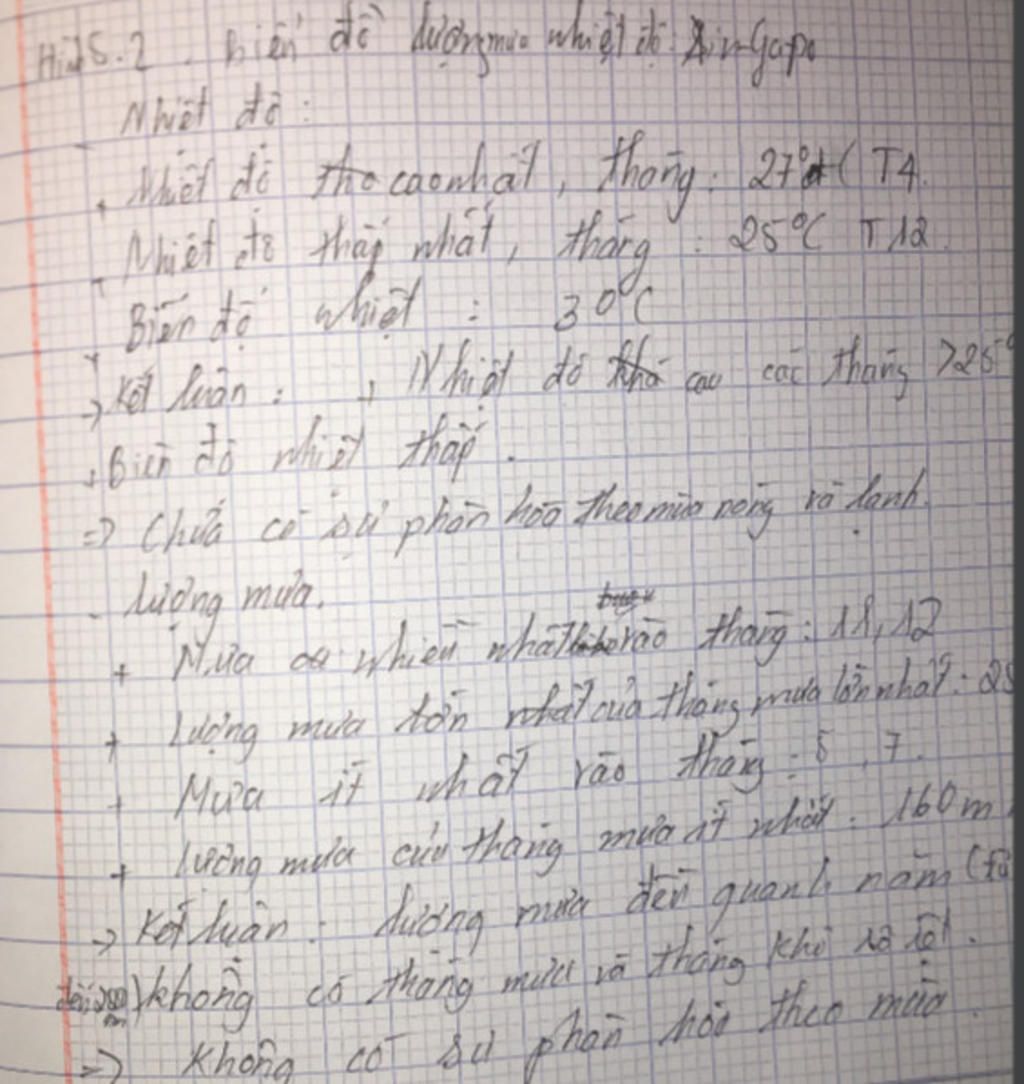 Hình 5.2. Biến đồ lượng mưa nhiệt độ: SinGapo
- Nhiệt độ:
+ Nhiệt độ cao nhất, tháng: 27°C T4.
+ Nhiệt độ thấp nhất, tháng: 25°C T12.
+ Biên độ nhiệt: 3°C
→ Kết luận: + Nhiệt độ cao các tháng >25°
+ Biên độ nhiệt thấp.
=> Chưa có sự phân hóa theo mùa nóng và lạnh.
- Lượng mưa.
+ Mưa nhiều nhất vào tháng: 11, 12
+ Lượng mưa của tháng mưa lớn nhất: 25
+ Mưa ít nhất vào tháng: 5, 7.
+ Lượng mưa của tháng mưa ít nhất: 160m
→ Kết luận: Lượng mưa đến quanh năm (từ
không có tháng mưa và tháng khô rõ rệt.
=> Không có sự phân hóa theo mùa.